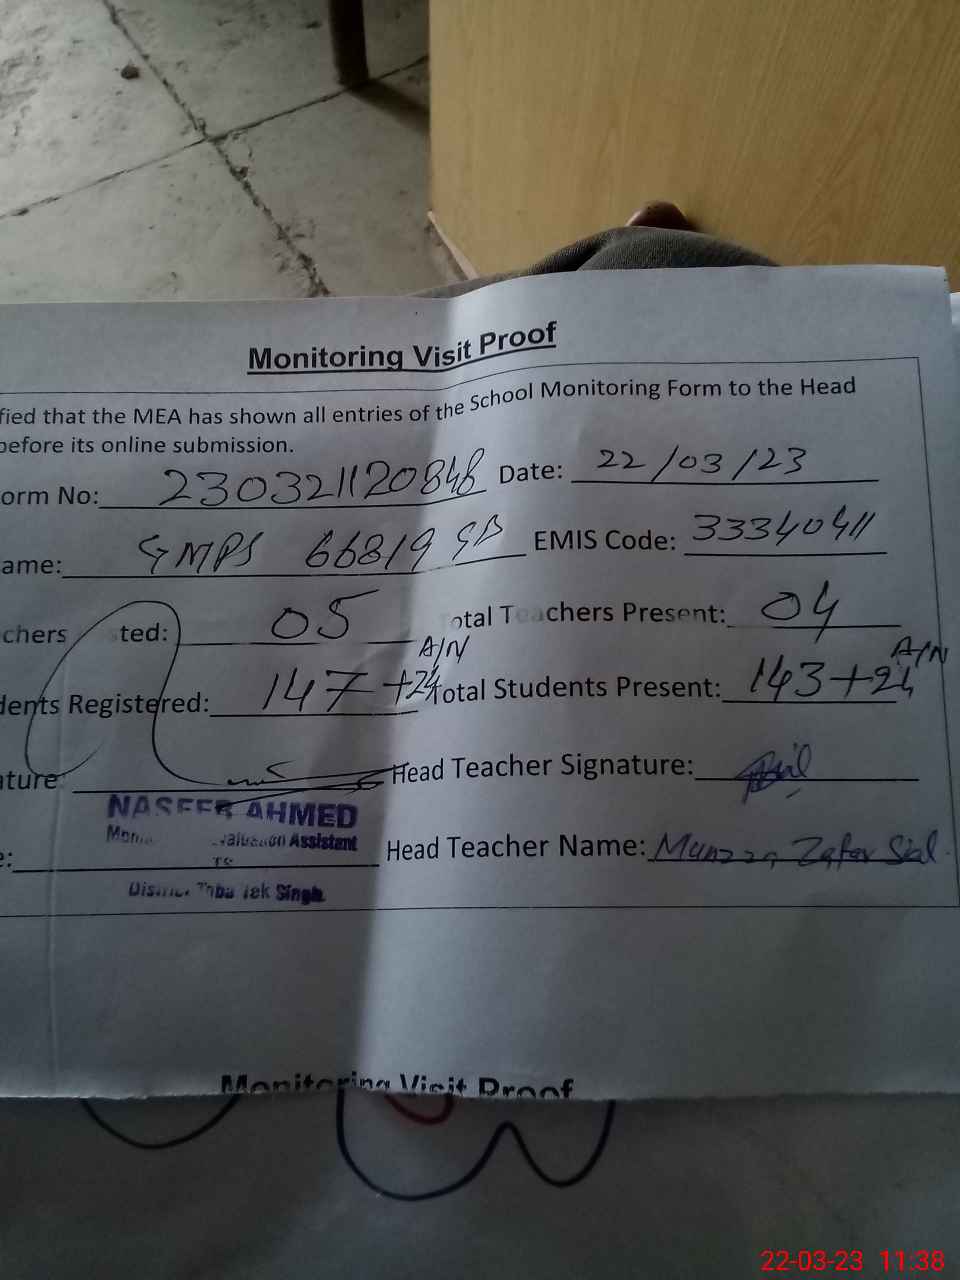 Monitoring Visit Proof
fied that the MEA has shown all entries of the School Monitoring Form to the Head
before its online submission.
orm No: 230321120848 Date: 22/03/23
ame: GMPS 668/9 GB EMIS Code: 33340411
chers ted: 05 otal Teachers Present: 04
A/N A/N
dents Registered: 147+24 Total Students Present: 143+24
ature: Head Teacher Signature:
NASEER AHMED
Assistant
e: Head Teacher Name: Zafar Sial
TS
District Toba Tek Singh
Monitoring Visit Proof
22-03-23 11:38